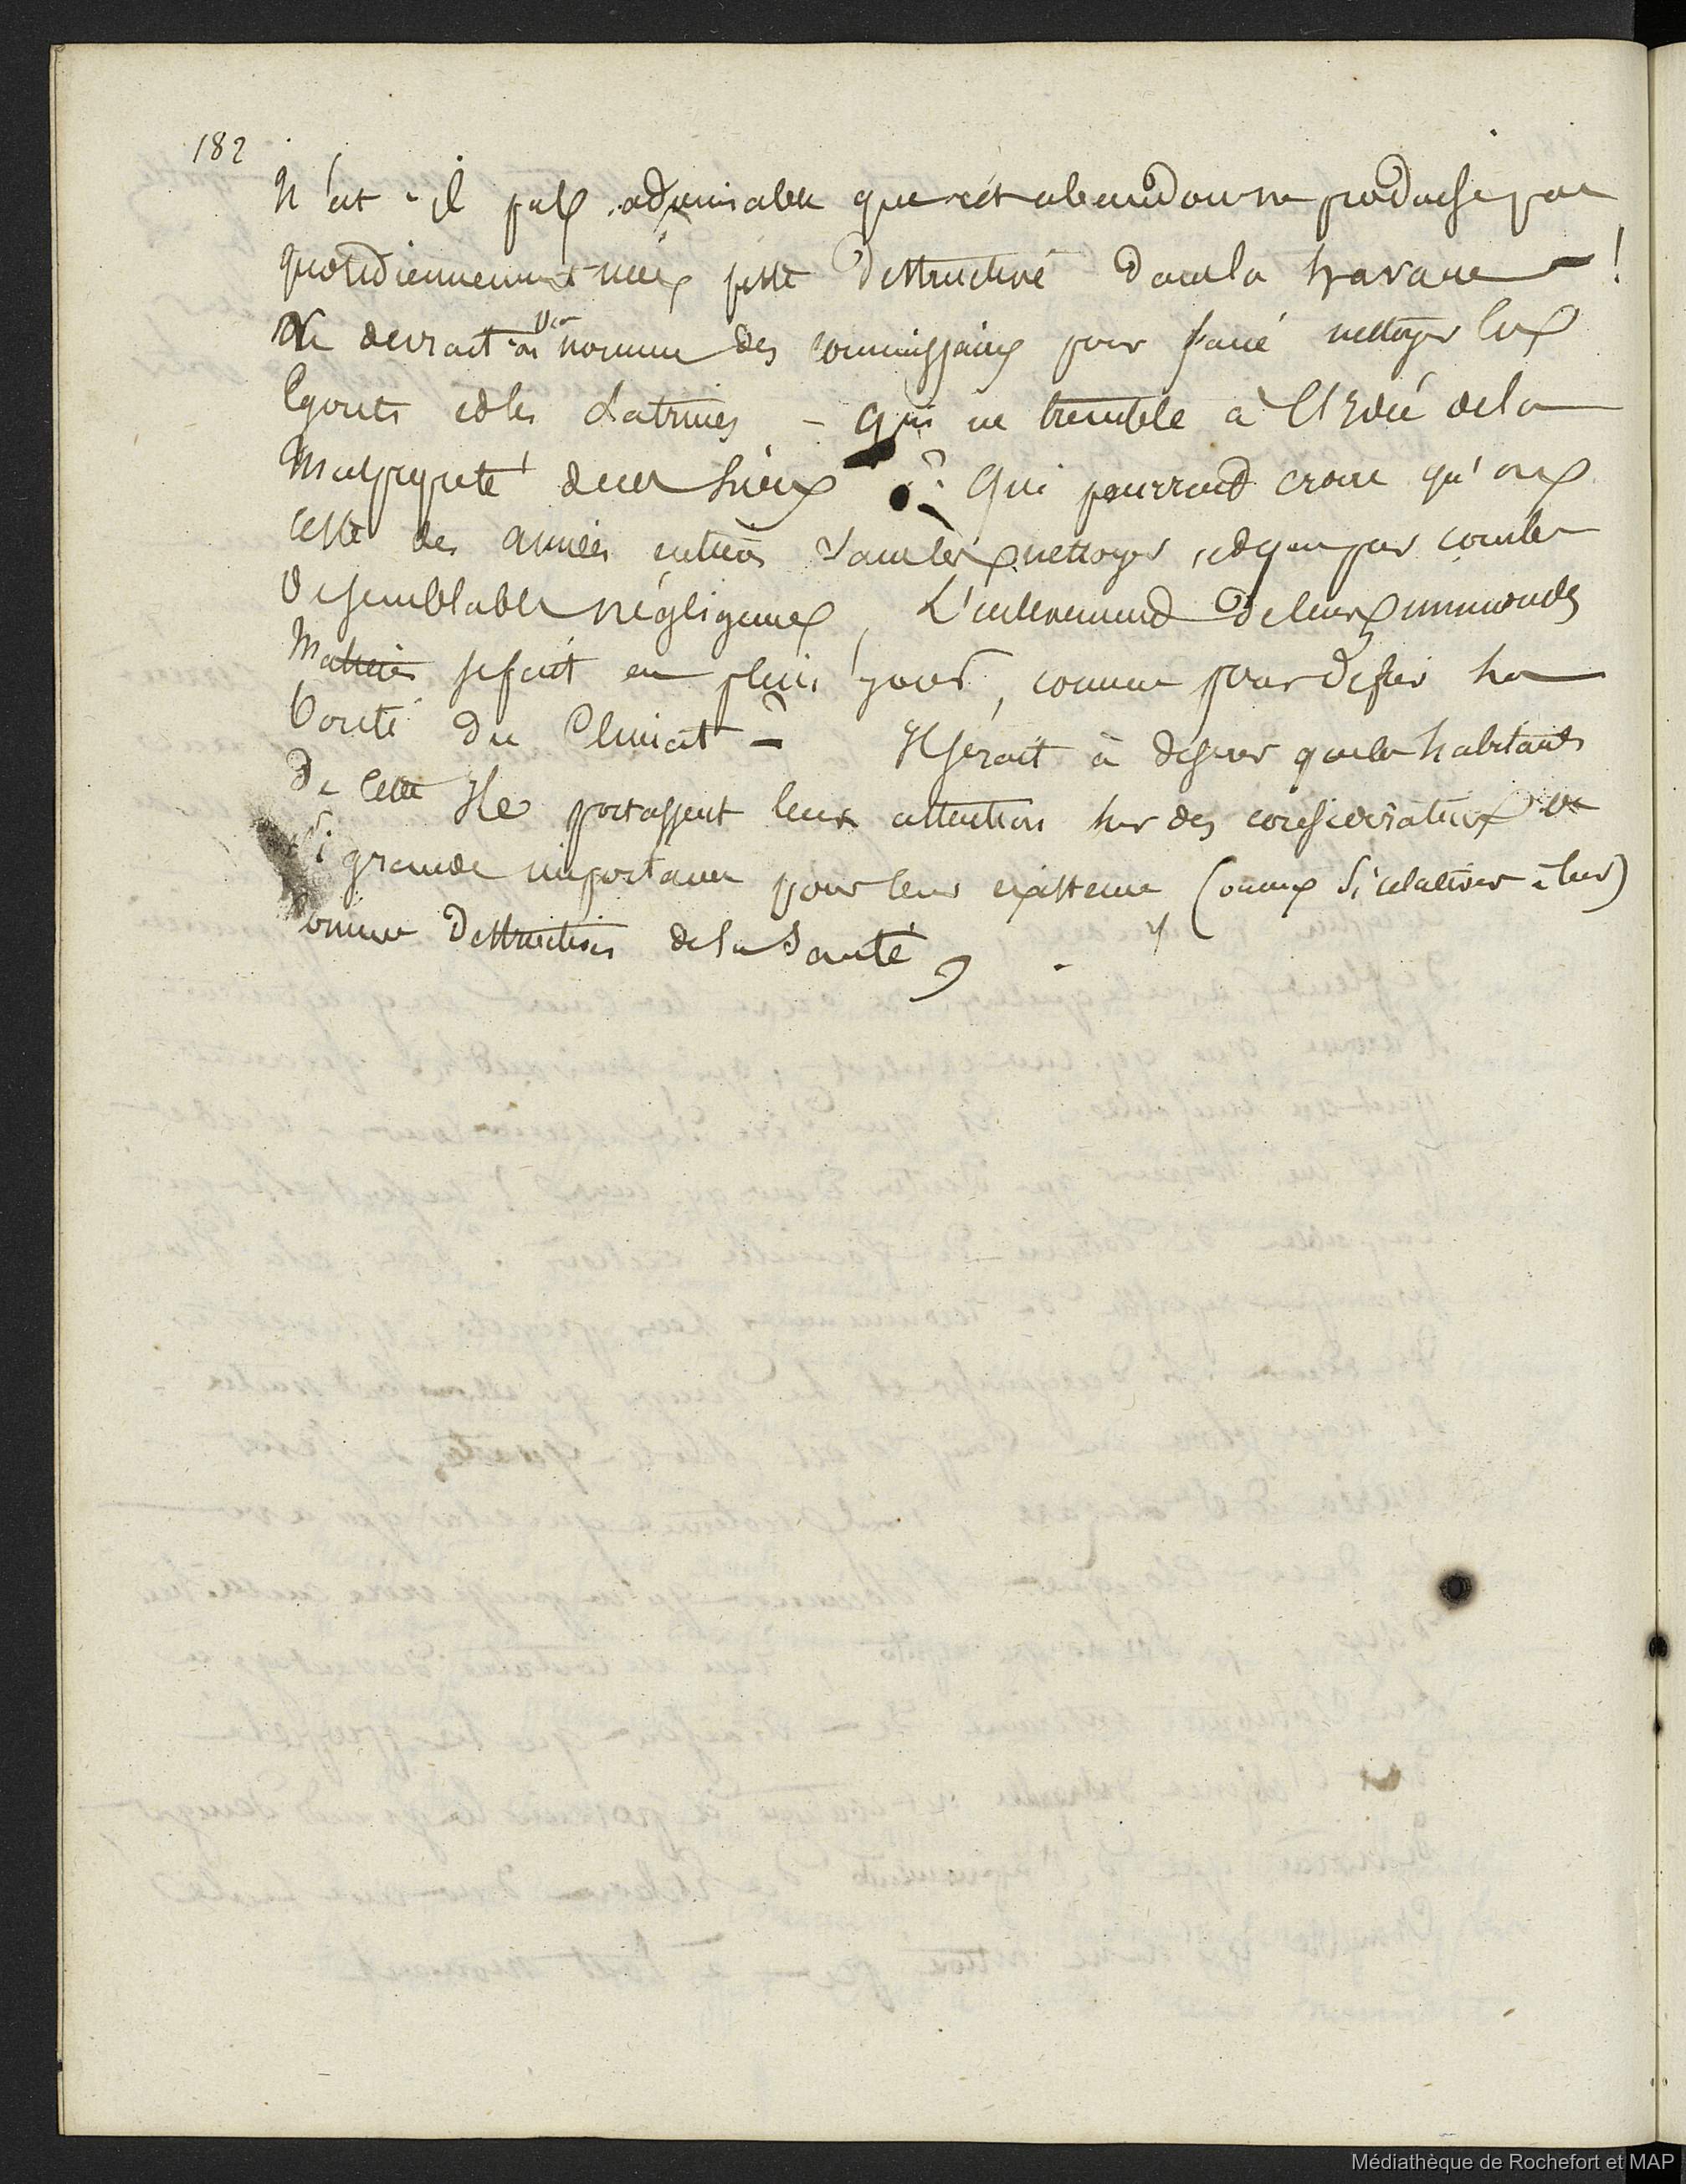 182
N'est-il pas admirable que cet abandon ne produise pas
quotidiennement une peste destructive dans la havane !
Ne devrait-on pas nommer des commissaires pour faire nettoyer les
Egouts et les Latrines - Qui ne tremble à l'Idée de la
Malpropreté de ces lieux ? Qui pourroit croire qu'on
reste des années entières sans les nettoyer, et que par
de semblables négligences, L'enlevement de leurs immondes
Matieres se fait en plein jour, comme pour defier la
bonté du Climat - Il serait à desirer que les habitants
de cette Ile portassent leur attention sur des considerations de
si grande importance pour leur existence (comme si relatives à leur)
comme destruction de la Santé
Médiathèque de Rochefort et MAP